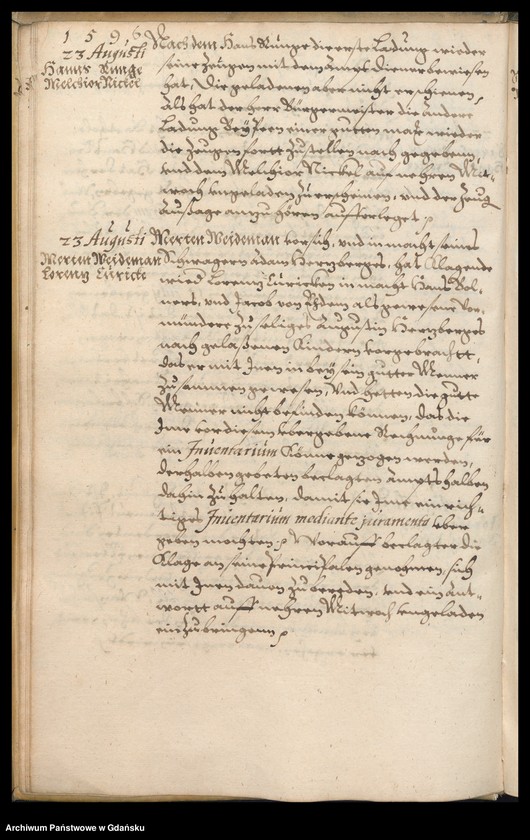 1 5 9 6
23 Augusti
Hanns Runge
Melchior Nickel
Nachdem Hans Runge die erste Ladung wieder
seine Zeugen mit dem Ampt Diener bewiesen
hat, Die geladenen aber nicht erschienen,
Als hat der Herr Bürgermeister die andere
Ladung bey einer gutten mark wieder
die Zeugen fortt zustellen nach gegebenn,
unnd dem Melchior Nickel auf nehren Mit-
woch eingeladen zuerscheinen, und der Zeug
Aussage anzuhören aufferleget
23 Augusti
Merten Weideman
Lorentz Luricke
Merten Weideman vor sich, und in macht seines
Schwagern Adam Hertzberges, hat Klagende
wied Lorentz Luricken in macht Hans Bol-
ners, und Jacob von als gewesene Vor-
mündere zu seliges Augustin Hertzberges
nach gelassenen Kindern vorgebracht,
das er mit Inen in beysein gutter Menner
zusammen gewesen, Und hetten die gutte
Menner nicht befinden können, das die
Ime vor diesem ubergebene Rechnunge für
ein Inventarium könne gezogen werden,
derhalben gebeten beclagten Ampts halben
dahin zuhalten, damit sie Ime ein rich-
tiges Inventarium mediante juramento uber
geben mochten. Worauff beclagter die
Klage an seine Principalen genohmen, sich
mit Inen davon zubereden, und ein Ant-
wortt auff nehren Mitwoch eingeladen
einzubringenn
Archiwum Państwowe w Gdańsku